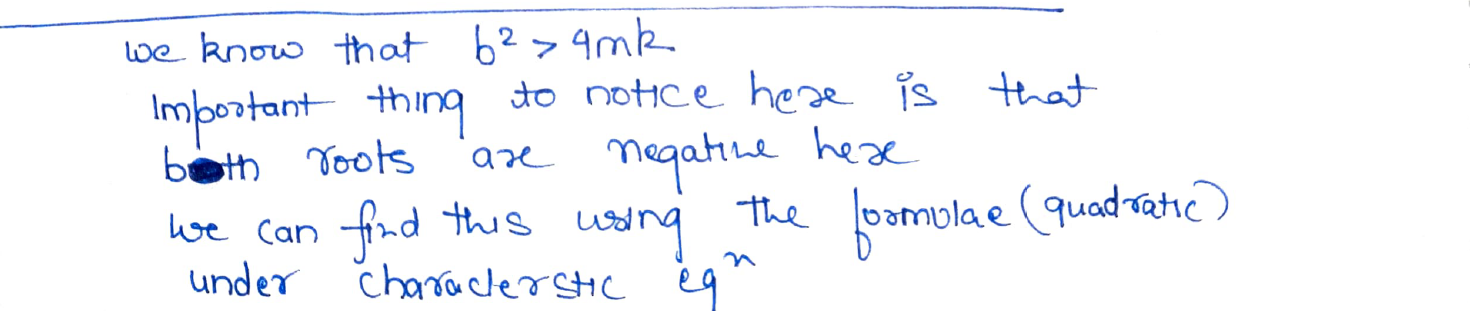 we know that b² > 4mk
Important thing to notice here is that
both roots are negative here
we can find this using the formulae (quadratic)
under characterstic eqⁿ